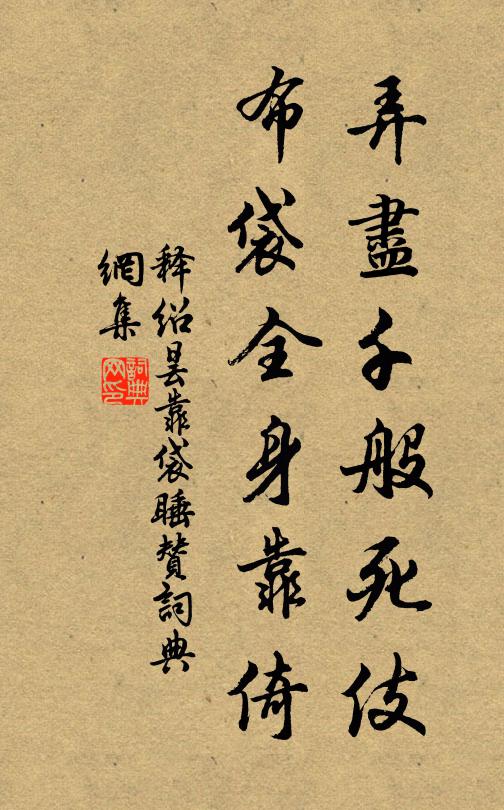 弄盡千般死伎
布袋全身靠倚
释紹曇靠袋睡贊詞典
網集
詞典
网印